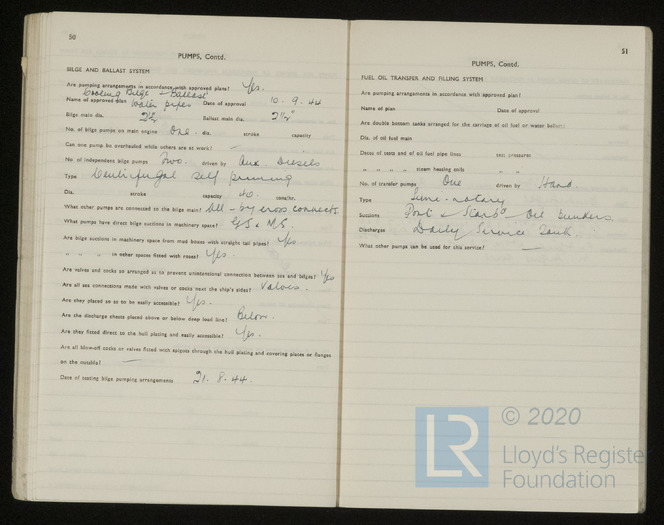 50
PUMPS, Contd.
BILGE AND BALLAST SYSTEM
Are pumping arrangements in accordance with approved plans? Yes.
Cooling Bilge & Ballast
Name of approved plan Water pipes Date of approval 10.9.44
Bilge main dia. 2½ Ballast main dia. 2½"
No. of bilge pumps on main engine One. dia. stroke capacity
Can one pump be overhauled while others are at work? —
No. of independent bilge pumps Two. driven by Aux. Diesels
Type Centrifugal self priming
Dia. stroke capacity 40. tons/hr.
What other pumps are connected to the bilge main? All - by cross connects.
What pumps have direct bilge suctions in machinery space? G.S & M.S.
Are bilge suctions in machinery space from mud boxes with straight tail pipes? Yes.
" " " in other spaces fitted with roses? Yes.
Are valves and cocks so arranged as to prevent unintentional connection between sea and bilges? Yes
Are all sea connections made with valves or cocks next the ship's sides? Valves.
Are they placed so as to be easily accessible? Yes.
Are the discharge chests placed above or below deep load line? Below.
Are they fitted direct to the hull plating and easily accessible? Yes.
Are all blow-off cocks or valves fitted with spigots through the hull plating and covering plates or flanges
on the outside? —
Date of testing bilge pumping arrangements 21.8.44.
51
PUMPS, Contd.
FUEL OIL TRANSFER AND FILLING SYSTEM
Are pumping arrangements in accordance with approved plan?
Name of plan Date of approval
Are double bottom tanks arranged for the carriage of oil fuel or water ballast?
Dia. of oil fuel main
Dates of tests and of oil fuel pipe lines test pressures
" " " " steam heating coils " "
No. of transfer pumps One driven by Hand.
Type Semi-rotary
Suctions Port & Starbd Oil bunkers.
Discharges Daily Service Tank.
What other pumps can be used for this service? —
LR
© 2020
Lloyd's Register
Foundation